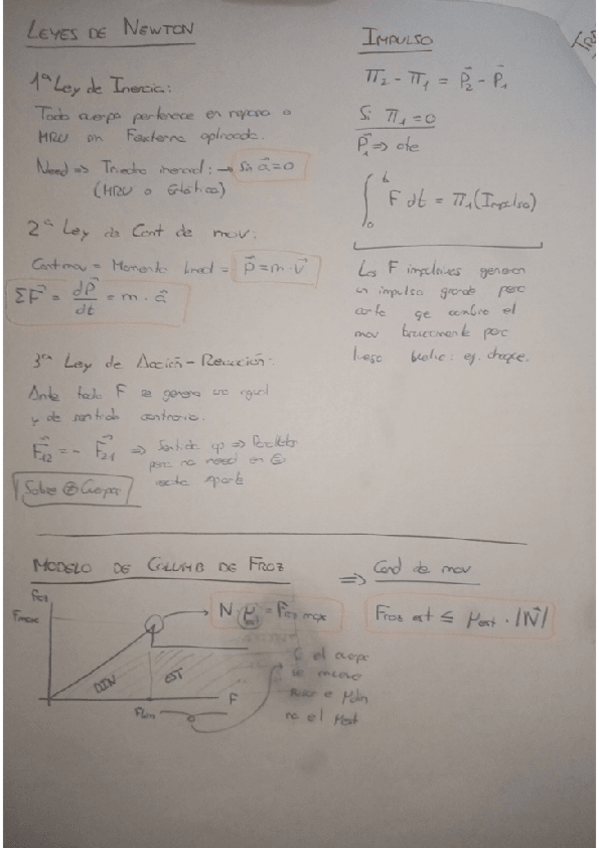 LEYES DE NEWTON
1ª Ley de Inercia:
Todo cuerpo pertenece en reposo o
MRU sin Fexterna aplicada.
Need => Triedro inercial: → Si a⃗=0
(MRU o Estático)
2ª Ley de Cont de mov:
Cant mov = Momento lineal = p⃗ = m · v⃗
ΣF⃗ = dp⃗/dt = m · a⃗
3ª Ley de Acción-Reacción:
Ante toda F se genera una igual
y de sentido contrario.
F⃗12 = - F⃗21 => Sentido op => Paralelas
pero no need en
recta soporte
Sobre ② Cuerpos
IMPULSO
π2 - π1 = p⃗2 - p⃗1
Si π1 = 0
p⃗1 => cte
∫0 t F dt = π1 (Impulso)
Las F impulsivas generan
un impulso grande pero
corto qe cambia el
mov bruscamente pero
luego vuelve: ej. choque.
MODELO DE COLUMB DE FROZ
Froz
Fmax
DIN
EST
F
Flim
N · μ = Froz max
Si el cuerpo
se mueve
μdin
no el μest
=> Cond de mov
Froz est ≤ μest · |N⃗|